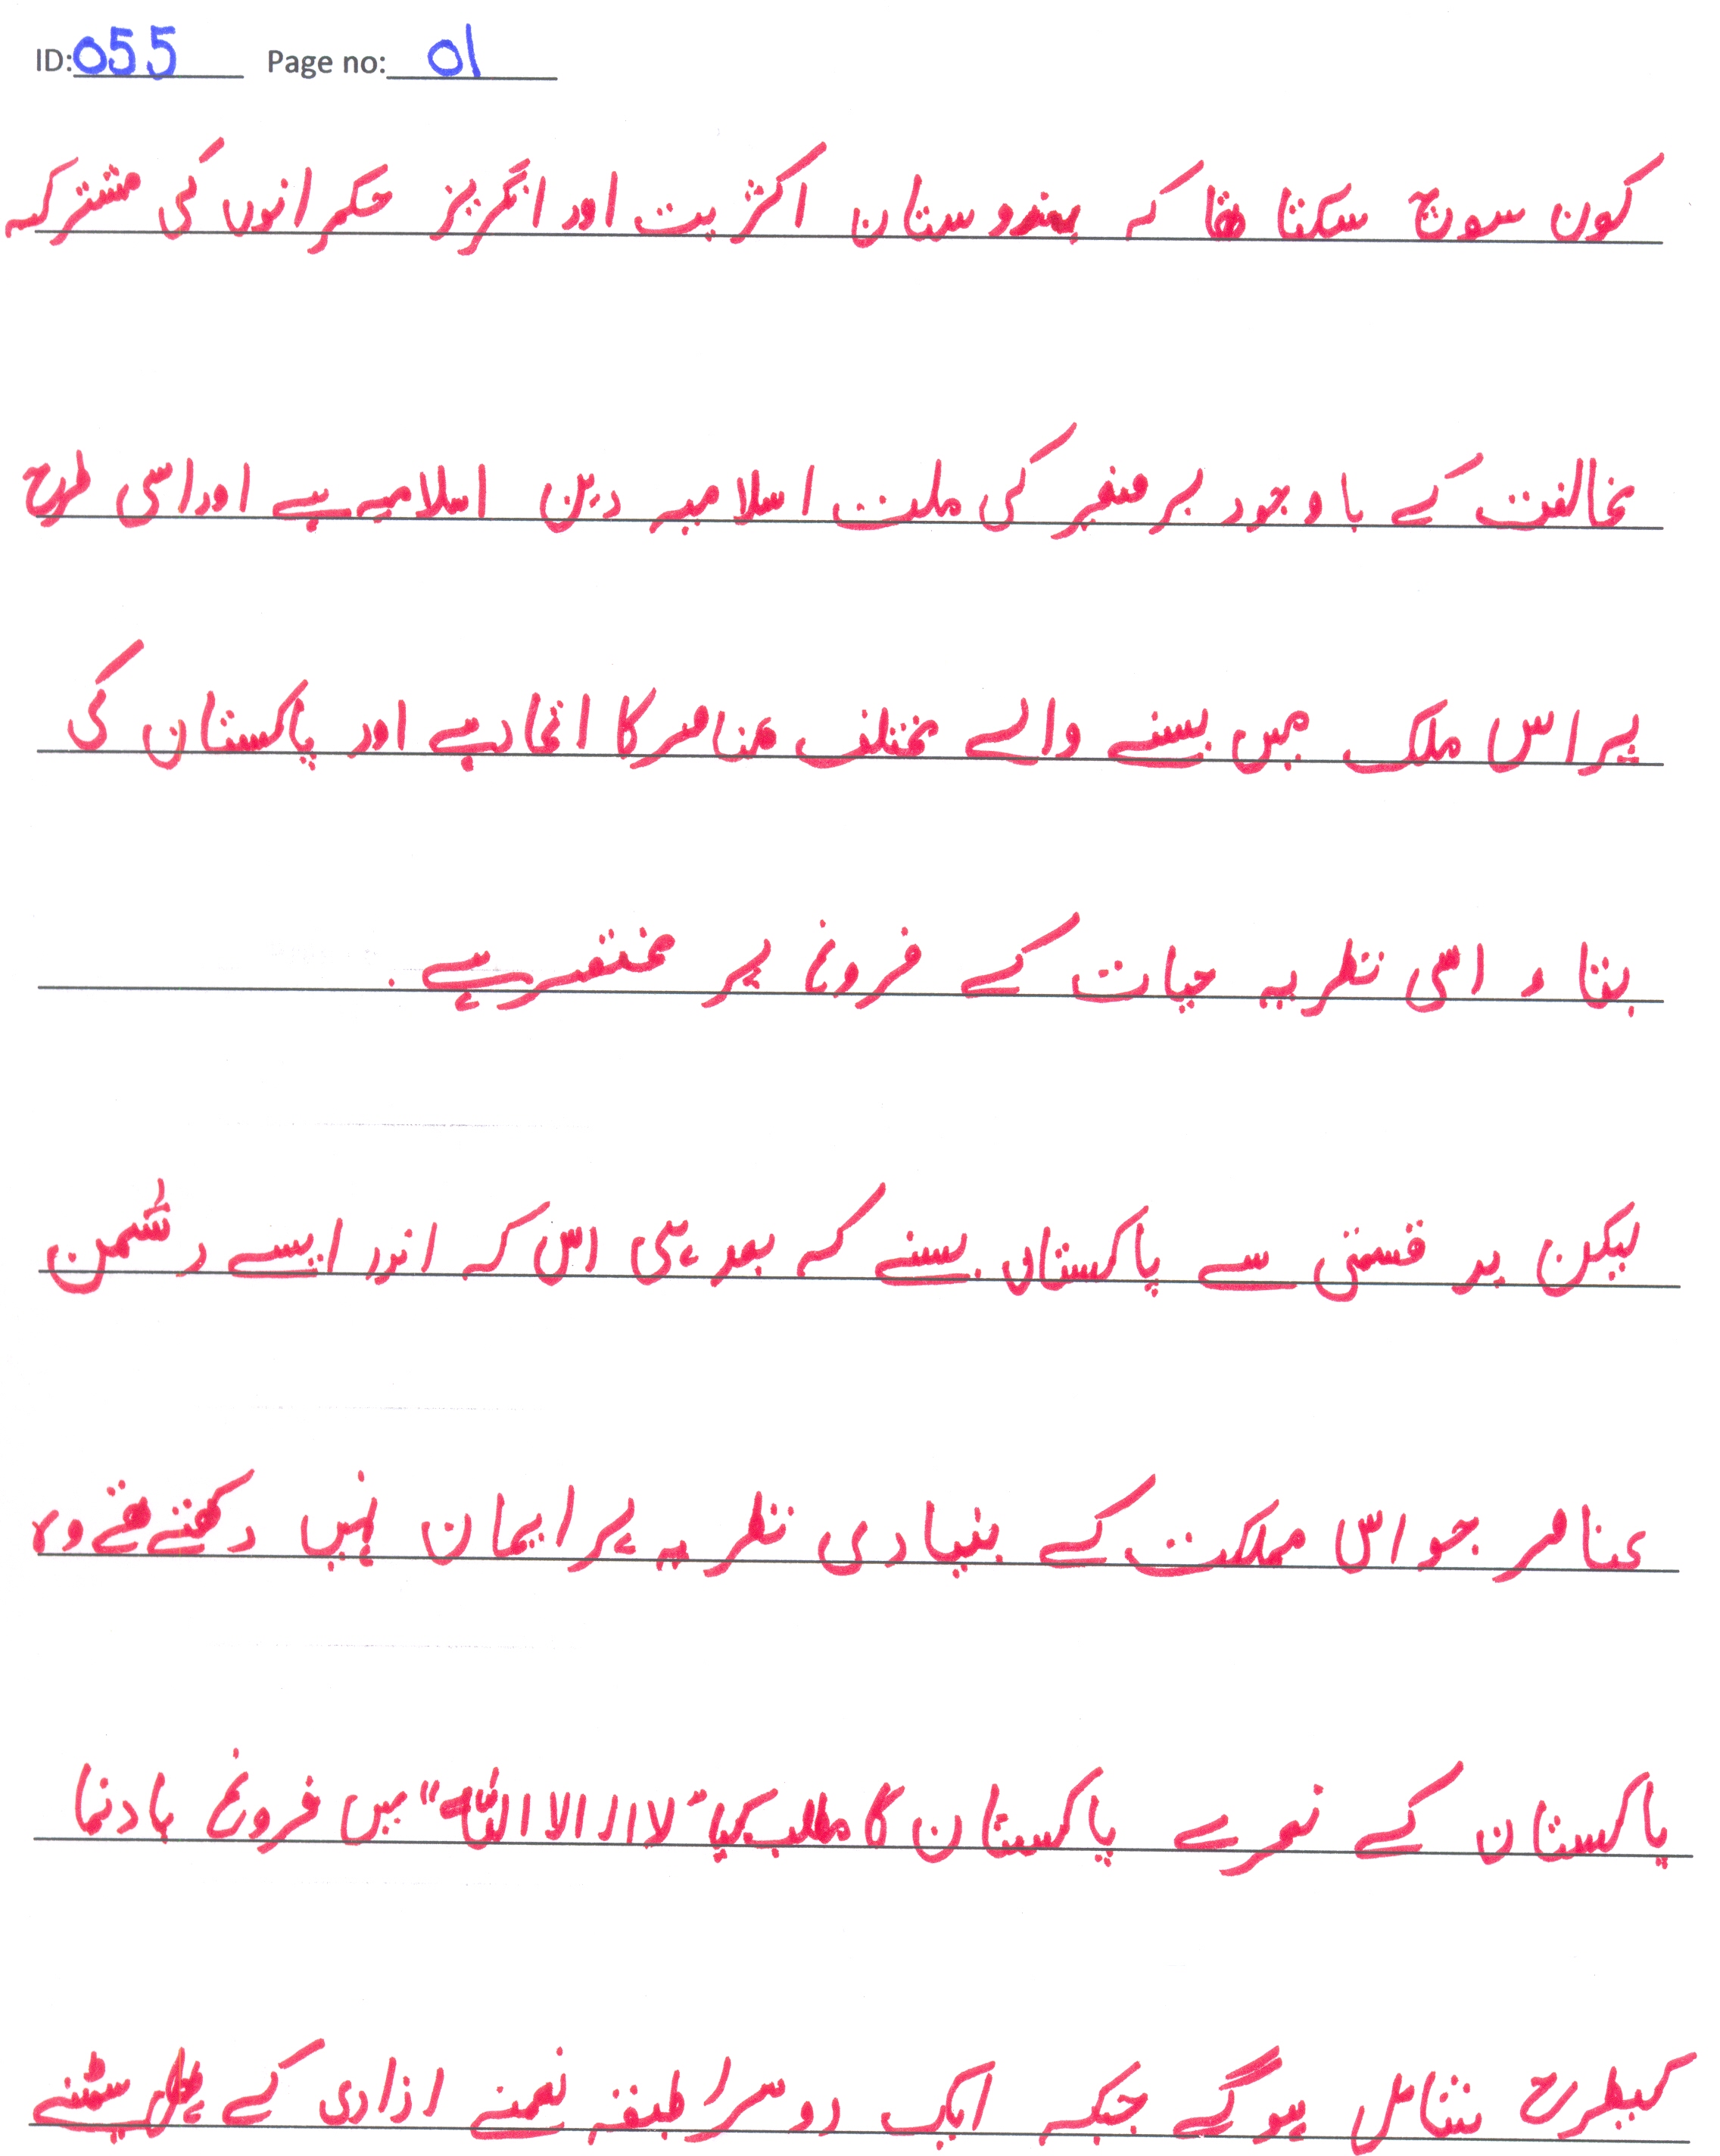 ID: 055 Page no: 01
کون سوچ سکتا تھا کہ ہندوستان اکثریت اور انگریز حکمرانوں کی مشترکہ
مخالفت کے باوجود برصغیر کی ملت اسلامیہ دین اسلامیہ ہے اور اسی طرح
پر اس ملک میں بسنے والے مختلف عناصر کا اتحاد ہے اور پاکستان کی
بقاء اسی نظریہ حیات کے فروغ پر مختصر ہے .
لیکن بد قسمتی سے پاکستان بسنے کہ بعد ہی اس کہ اندر ایسے دشمن
عناصر جو اس مملکت کے بنیادی نظریہ پر ایمان نہیں رکھتے تھے وہ
پاکستان کے نعرے پاکستان کا مطلب کیا "لا الہ الا اللہ" میں فروغ
کیطرح شامل ہوگے جبکہ ایک دوسرا طبقہ نعمتے ازادی کے پھل سمٹنے